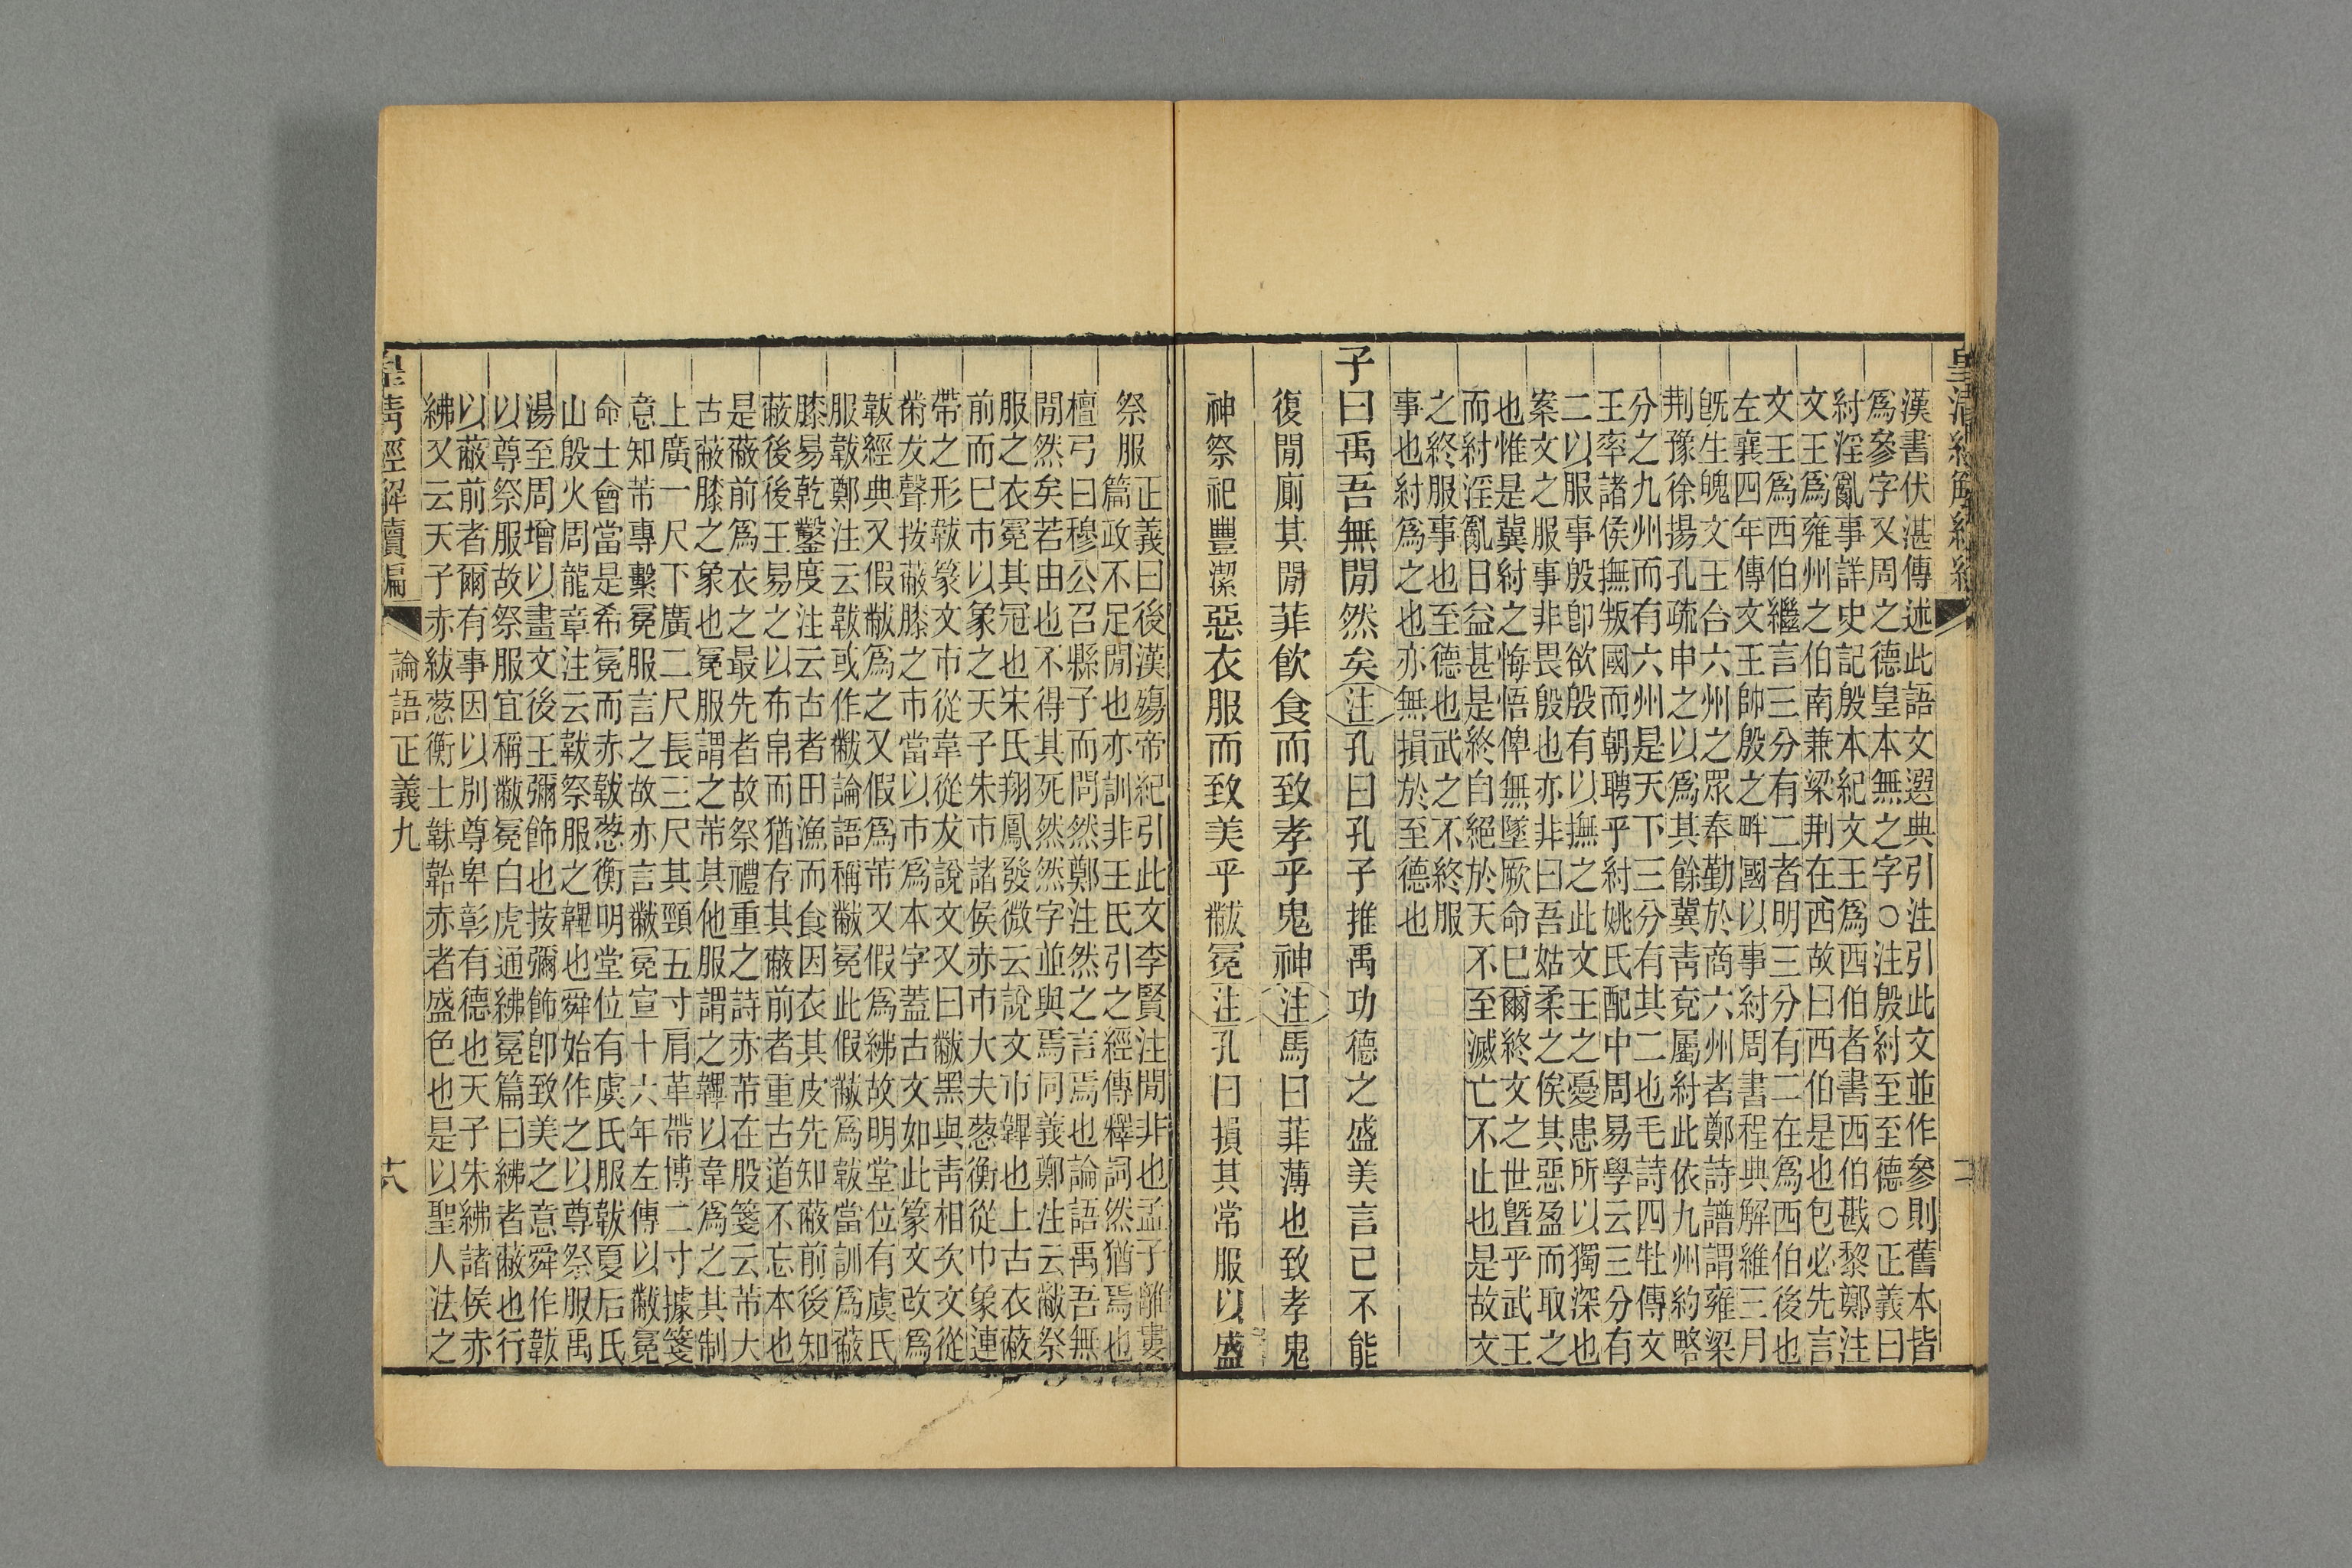 漢書伏湛傳述此語文選典引注引此文並作參則舊本皆
爲參字又周之德皇本無之字○注殷紂至至德○正義曰
紂淫亂事詳史記殷本紀文王爲西伯者書西伯戡黎鄭注
文王爲雍州之伯南兼梁荆在西故曰西伯是也包必先言
文王爲西伯繼言三分有二者明三分有二在爲西伯後也
左襄四年傳文王帥殷之畔國以事紂周書程典解維三月
旣生魄文王合六州之眾奉勤於商六州者鄭詩譜謂雍梁
荆豫徐揚孔疏申之以爲其餘冀青兗屬紂此依九州約略
分之九州而有六州是天下三分有其二也毛詩四牡傳文
王率諸侯撫叛國而朝聘乎紂姚氏配中周易學云三分有
二以服事殷卽欲殷有以撫之此文王之憂患所以獨深也
案文之服事非畏殷也亦非曰吾姑柔之俟其惡盈而取之
也惟是冀紂之悔悟俾無墜厥命已爾終文之世曁乎武王
而紂淫亂日益甚是終自絕於天不至滅亡不止也是故文
之終服事也至德也武之不終服
事也紂爲之也亦無損於至德也
子曰禹吾無閒然矣注孔曰孔子推禹功德之盛美言已不能
復閒廁其閒菲飲食而致孝乎鬼神注馬曰菲薄也致孝鬼
神祭祀豐潔惡衣服而致美乎黻冕注孔曰損其常服以盛
祭服
正義曰後漢殤帝紀引此文李賢注閒非也孟子離婁
篇政不足閒也亦訓非王氏引之經傳釋詞然猶焉也
檀弓曰穆公召縣子而問然鄭注然之言焉也論語禹吾無
閒然矣若由也不得其死然然字並與焉同義鄭注云黻祭
服之衣冕其冠也宋氏翔鳳發微云說文巿韠也上古衣蔽
前而已巿以象之天子朱巿諸侯赤巿大夫葱衡從巾象連
帶之形韍篆文巿從韋從犮說文又曰黻黑與青相次文從
黹犮聲按蔽膝之巿當以巿爲本字蓋古文如此篆文改爲
韍經典又假黻爲之又假爲芾又假爲紼故明堂位有虞氏
服韍鄭注云韍或作黻論語稱黻冕此假黻爲韍當訓爲蔽
膝易乾鑿度注云古者田漁而食因衣其皮先知蔽前後知
蔽後後王易之以布帛而猶存其蔽前者重古道不忘本也
是蔽前爲衣之最先者故祭禮重之詩赤芾在股箋云芾大
古蔽膝之象也冕服謂之芾其他服謂之韠以韋爲之其制
上廣一尺下廣二尺長三尺其頸五寸肩革帶博二寸據箋
意知芾專繫冕服言之故亦言黻冕宣十六年左傳以黻冕
命士會當是希冕而赤韍葱衡明堂位有虞氏服韍夏后氏
山殷火周龍章注云韍祭服之韠也舜始作之以尊祭服禹
湯至周增以畫文後王彌飾也按彌飾卽致美之意舜作韍
以尊祭服故祭服宜稱黻冕白虎通紼冕篇曰紼者蔽也行
以蔽前者爾有事因以別尊卑彰有德也天子朱紼諸侯赤
紼又云天子赤紱葱衡士韎韐赤者盛色也是以聖人法之
論語正義九